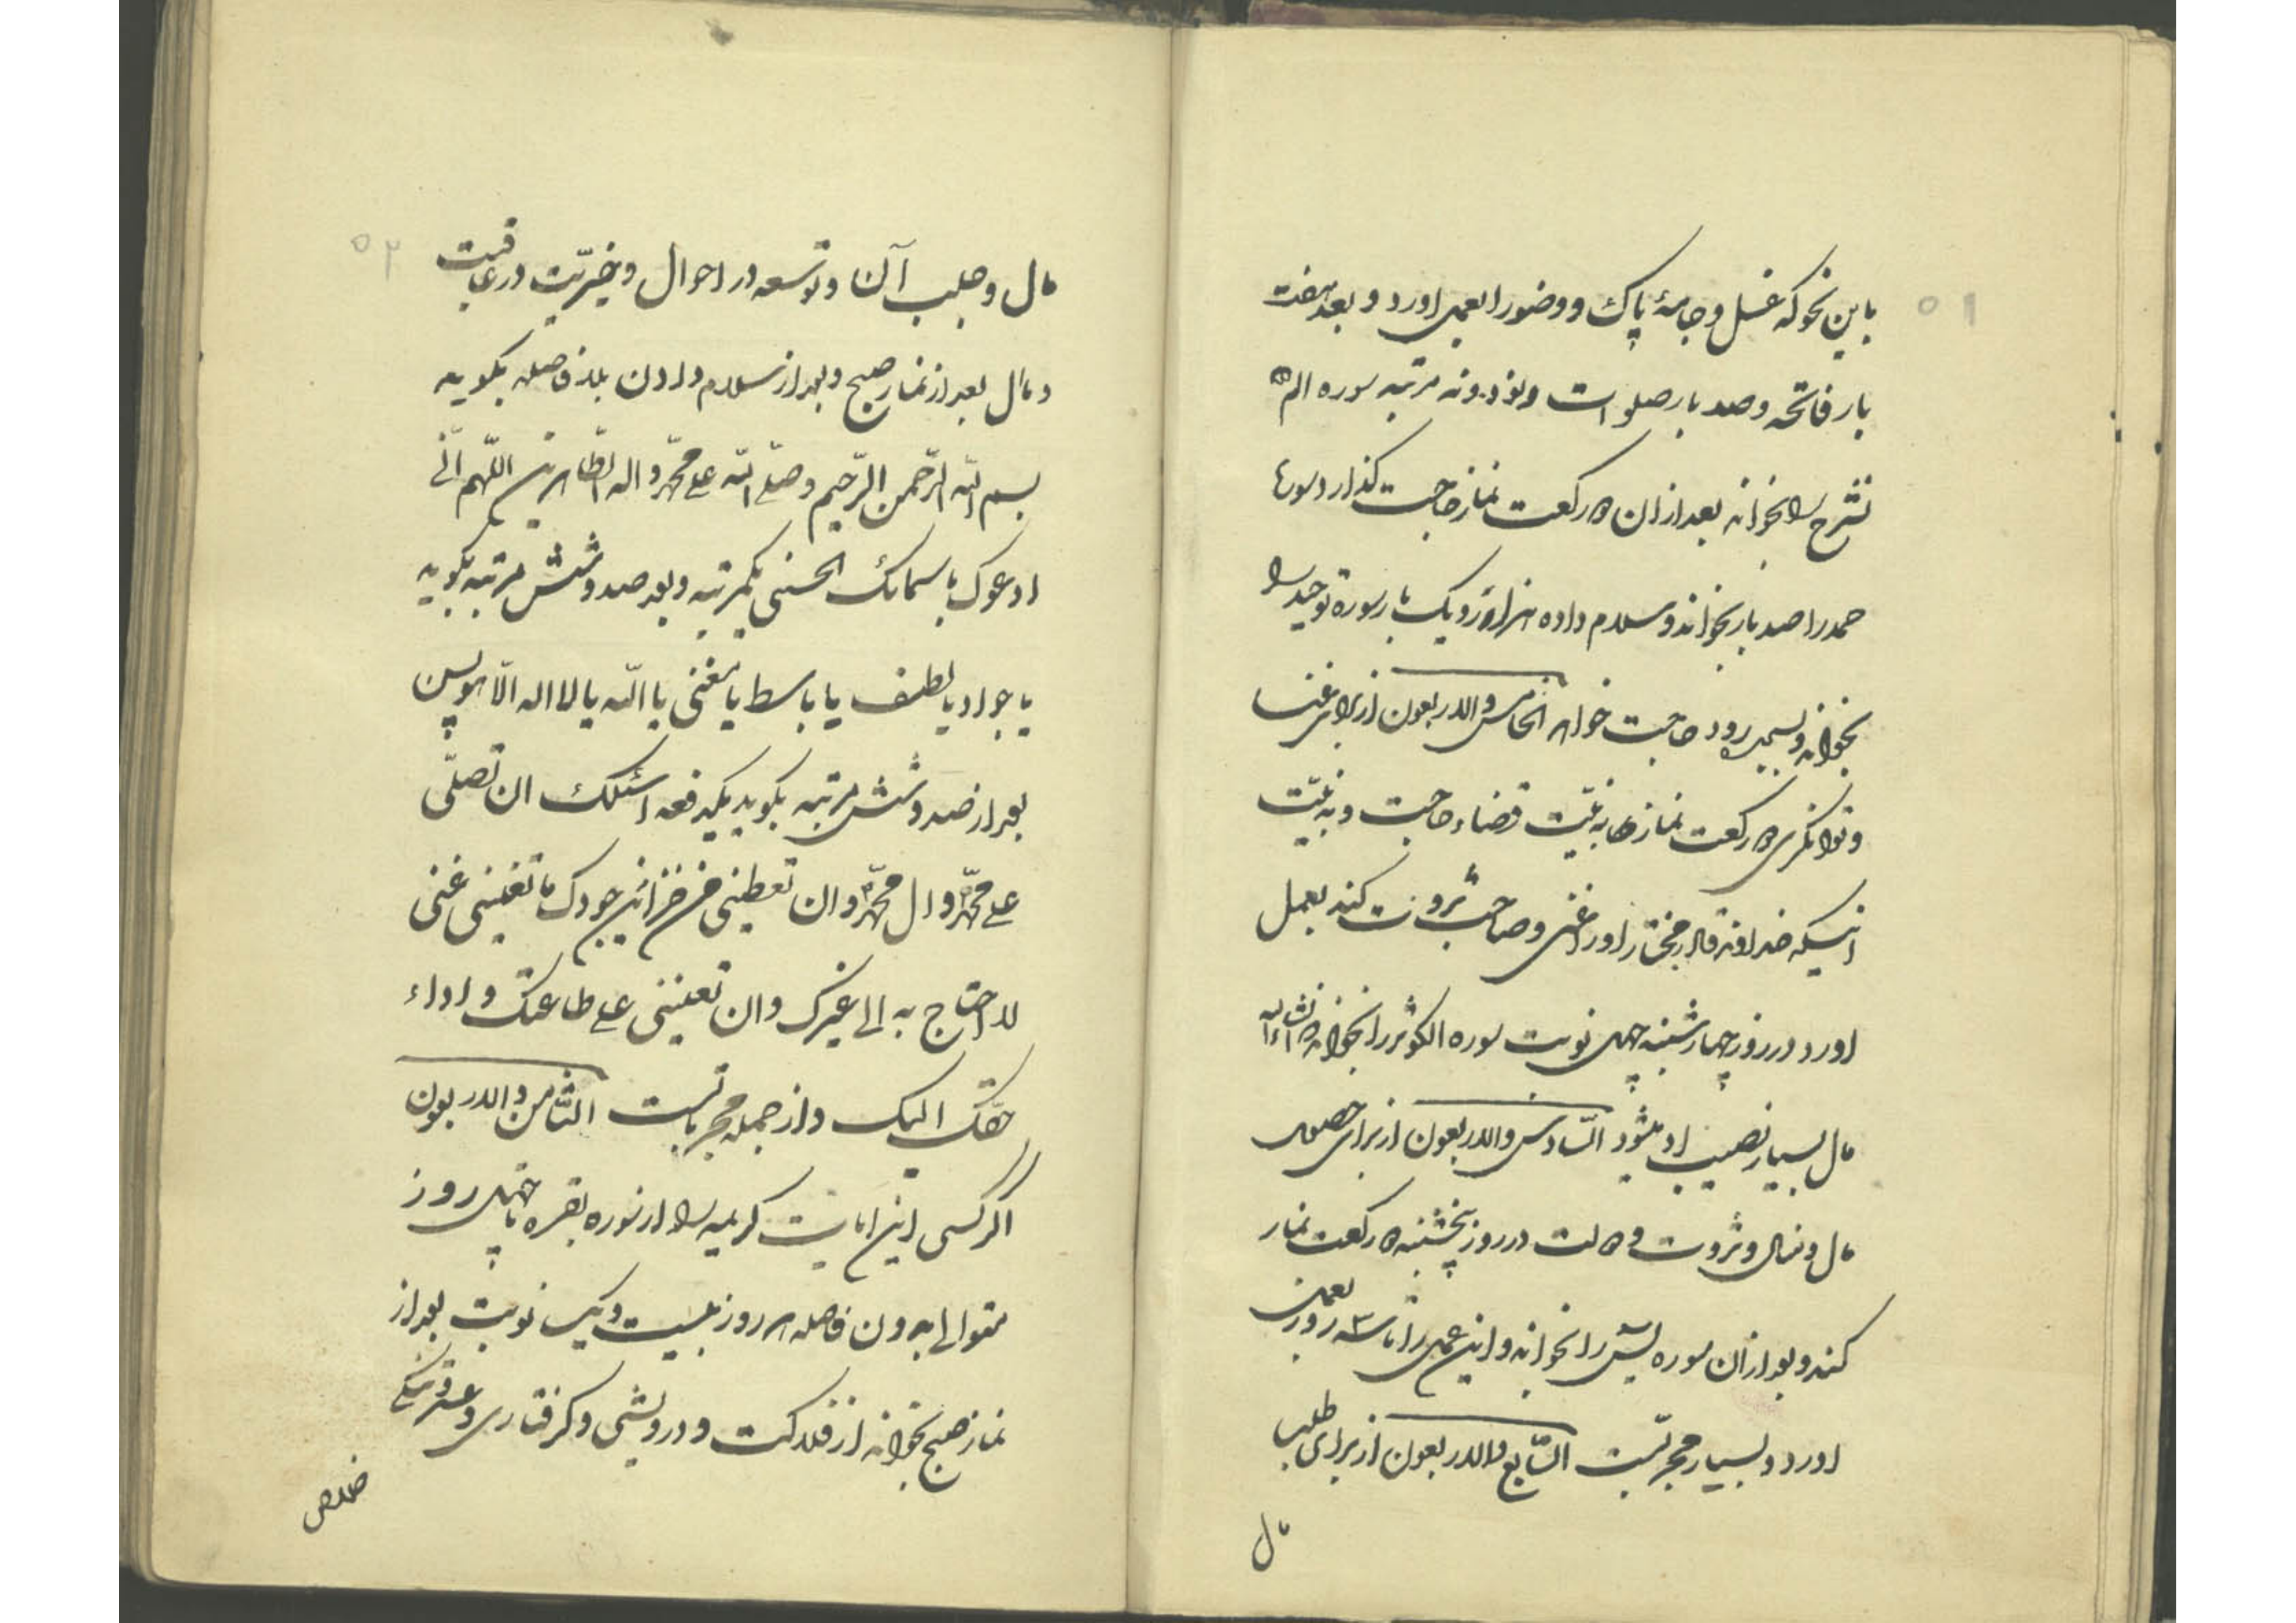 ۵۱
باین نحو که غسل و جامهٔ پاک و وضو را بعمل اورد و بعد هفت
بار فاتحه و صد بار صلوات و نود و نه مرتبه سوره الم
نشرح را بخواند بعد از ان دو رکعت نماز حاجت گذارد سورهٔ
حمد را صد بار بخواند و سلام داده هزار و یک بار سوره توحید را
بخواند و بسجده رود حاجت خواهد الخامس والاربعون از برای غنا
و توانگری دو رکعت نماز را به نیّت قضاء حاجت و به نیّت
اینکه خداوند قادر مختار او را غنی و صاحب ثروت کند بعمل
اورد و در روز چهارشنبه چهل نوبت سوره الکوثر را بخواند انشاءالله
مال بسیار نصیب او میشود السّادس والاربعون از برای حصول
مال و منال و ثروت و دولت در روز پنجشنبه دو رکعت نماز
کند و بعد از ان سوره یس را بخواند و این عمل را تا سه روز بعمل
اورد و بسیار مجربست السّابع والاربعون از برای طلب
مال
۵۲
مال و جلب آن و توسعه در احوال و خیریّت در عاقبت
و مال بعد از نماز صبح و بعد از سلام دادن بلا فاصله بگوید
بسم الله الرّحمن الرّحیم و صلّی الله علی محمّد و اله الطّاهرین اللّهم انّی
ادعوک باسمائک الحسنی یکمرتبه و بعد صد و شش مرتبه بگوید
یا جواد یا لطیف یا باسط یا مغنی یا الله یا لا اله الّا هو پس
بعد از صد و شش مرتبه بگوید یکدفعه اسئلک ان تصلّی
علی محمّد و ال محمّد و ان تعطینی من خزائن جودک ما تغنینی غنی
لا احتاج به الی غیرک و ان تعیننی علی طاعتک و اداء
حقّک الیک و از جمله مجرباتست الثّامن والاربعون
اگر کسی این ایات کریمه را از سوره بقره تا چهل روز
متوالی بدون فاصله هر روز بیست و یک نوبت بعد از
نماز صبح بخواند از فلاکت و درویشی و گرفتاری و عسرو تنگی
خلاص